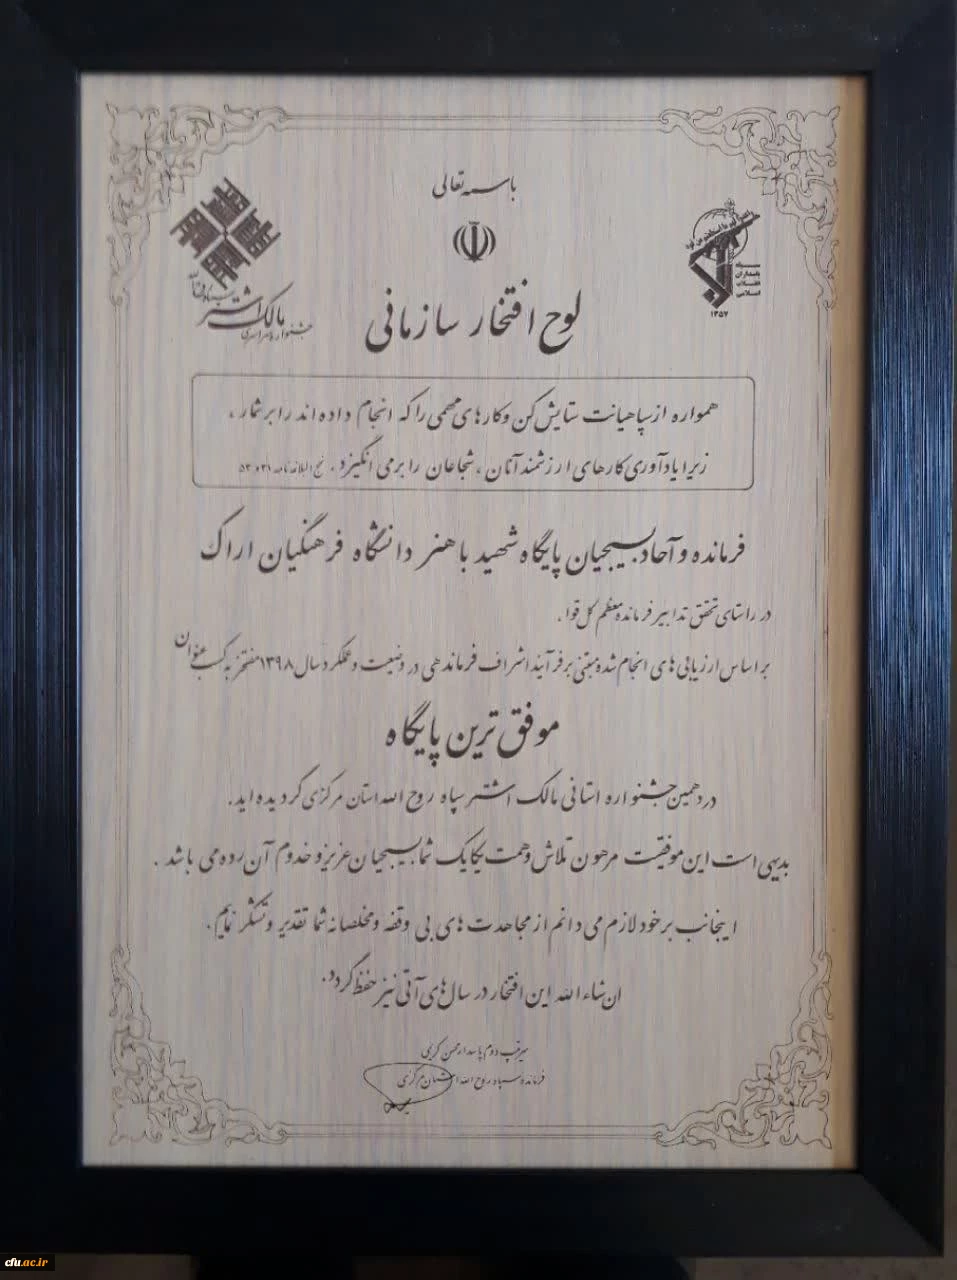 باسمه تعالی
سپاه
پاسداران
انقلاب
اسلامی
۱۳۵۷
مالک اشتر
جشنواره سراسری
لوح افتخار سازمانی
همواره از سپاهیانت ستایش کن و کارهای مهمی را که انجام داده‌اند را بر شمار ،
زیرا یادآوری کارهای ارزشمند آنان ، شجاعان را بر می انگیزد . نهج البلاغه نامه ۵۳
فرمانده و آحاد بسیجیان پایگاه شهید باهنر دانشگاه فرهنگیان اراک
در راستای تحقق تدابیر فرمانده معظم کل قوا ،
بر اساس ارزیابی های انجام شده مبتنی بر فرآیند اشراف فرماندهی در وضعیت و عملکرد سال ۱۳۹۸ مفتخر به کسب عنوان
موفق ترین پایگاه
در دهمین جشنواره استانی مالک اشتر سپاه روح الله استان مرکزی گردیده اید .
بدیهی است این موفقیت مرهون تلاش و همت یکایک شما بسیجیان عزیز و خدوم آن رده می باشد .
اینجانب بر خود لازم می دانم از مجاهدت های بی وقفه و مخلصانه شما تقدیر و تشکر نمایم .
ان شاء الله این افتخار در سال های آتی نیز حفظ گردد .
سرتیپ دوم پاسدار محسن کریمی
فرمانده سپاه روح الله استان مرکزی
cfu.ac.ir